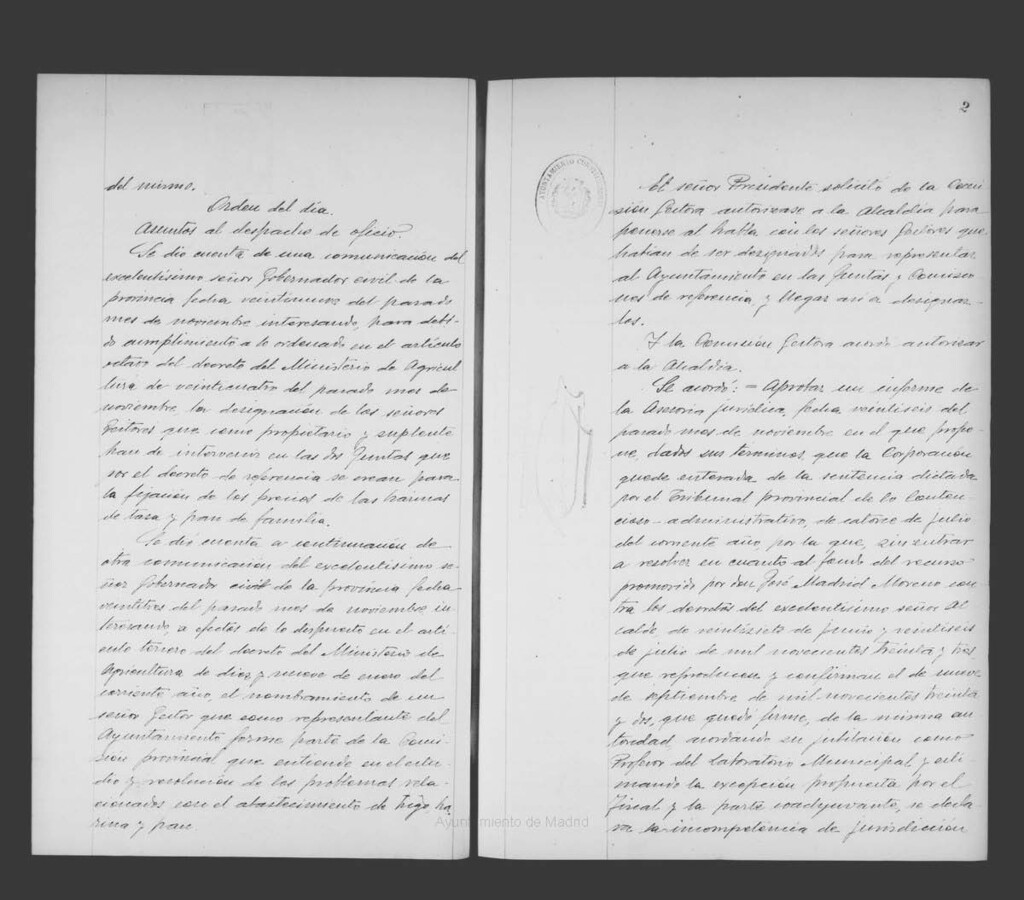 del mismo.
Orden del día.
Asuntos al despacho de oficio.
Se dio cuenta de una comunicación del
excelentísimo señor Gobernador civil de la
provincia fecha veintinueve del pasado
mes de noviembre interesando, para debi-
do cumplimiento a lo ordenado en el artículo
octavo del decreto del Ministerio de Agricul
tura de veinticuatro del pasado mes de
noviembre, la designación de los señores
Gestores que como propietario y suplente
han de intervenir en las dos Juntas que
por el decreto de referencia se crean para
la fijación de los precios de las harinas
de tasa y pan de familia.
Se dio cuenta a continuación de
otra comunicación del excelentísimo se-
ñor Gobernador civil de la provincia fecha
veintitres del pasado mes de noviembre in-
teresando, a efectos de lo dispuesto en el artí-
culo tercero del decreto del Ministerio de
Agricultura de diez y nueve de enero del
corriente año, el nombramiento de un
señor Gestor que como representante del
Ayuntamiento forme parte de la Comi-
sión provincial que entiende en el estu-
dio y resolución de los problemas rela-
cionados con el abastecimiento de trigo, ha
rina y pan.
2
AYUNTAMIENTO
El señor Presidente solicitó de la Comi
sión Gestora autorizase a la Alcaldía para
ponerse al habla con los señores Gestores que
habían de ser designados para representar
al Ayuntamiento en las Juntas y Comisio
nes de referencia, y llegar así a designar-
los.
Y la Comisión Gestora acordó autorizar
a la Alcaldía.
Se acordó: = Aprobar un informe de
la Asesoría jurídica, fecha veintiseis del
pasado mes de noviembre en el que propo-
ne, dados sus terminos, que la Corporación
quede enterada de la sentencia dictada
por el Tribunal provincial de lo Conten-
cioso-administrativo, de catorce de julio
del corriente año, por la que, sin entrar
a resolver en cuanto al fondo del recurso
promovido por don José Madrid Moreno con
tra los decretos del excelentísimo señor Al
calde, de veintisiete de junio y veintiseis
de julio de mil novecientos treinta y tres,
que reproducen y confirman el de nueve
de septiembre de mil novecientos treinta
y dos, que quedó firme, de la misma au
toridad, acordando su jubilación como
Profesor del Laboratorio Municipal y esti-
mando la excepción propuesta por el
Fiscal y la parte coadyuvante, se decla-
ra la incompetencia de jurisdicción
Ayuntamiento de Madrid